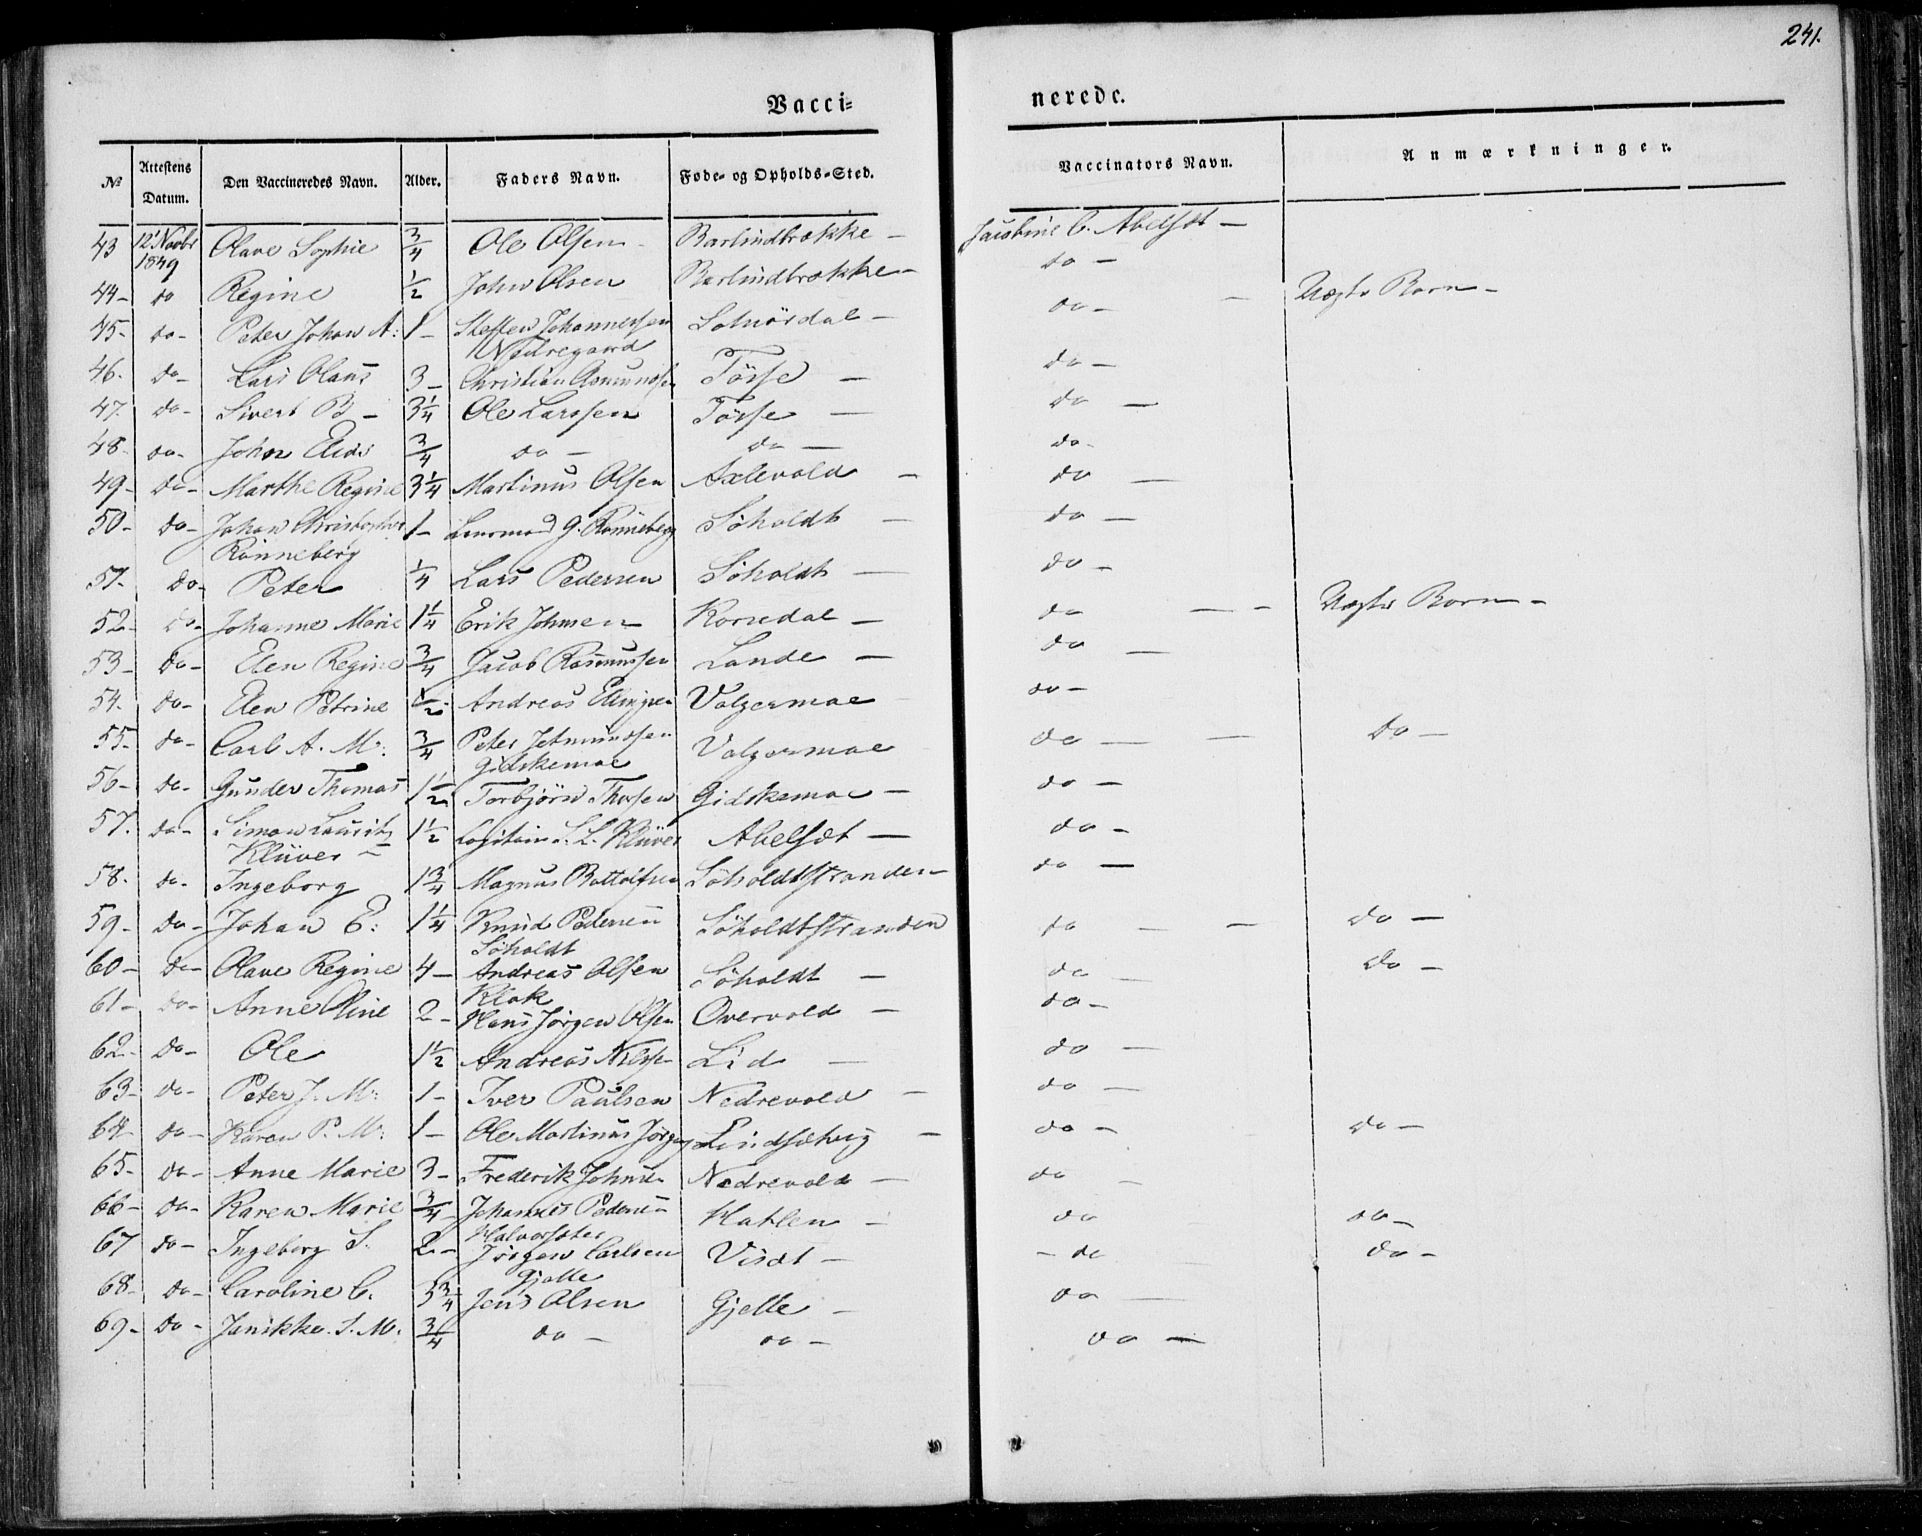 241.
Vacci= nerede.
No Attestens Datum. Den Vaccineredes Navn. Alder. Faders Navn. Føde- og Opholds-Sted. Vaccinators Navn. Anmærkninger.
43 12 Novbr 1849 Olave Sophie 3/4 Ole Olsen - Barlindbrække - Jacobine C. Abelsæt -
44 - do Regine 1/2 John Olsen Barlindbrække - do -
Uægte Barn -
45 - do - Peter Johan A: 1 - Steffen Johannessen Solnørdal - do -
Nedregaard
46. do - Lars Olaus 3 - Christian Asmundsen Tøsse - do -
47. do - Sivert B - 3 1/4 Ole Larssen Tøsse - do -
48 - do - Johan Elias 3/4 do - do - do -
49 - do - Marthe Regine 3 1/4 Martinus Olsen Axlevold - do -
50 - do - Johan Christopher 1 - G. Rønneberg Søholdt - do -
Rønneberg
51. do - Peter 1/4 Lars Pedersen Søholdt - do -
52 - do - Johanne Marie 1 1/4 Erik Johnsen Korsedal - do - - Uægte Barn -
53 - do - Elen Regine 3/4 Jacob Rasmussen Lande - do -
54. do - Elen Petrine 1/2 Andreas Valgermoe do -
55 - do - Carl A. M: 3/4 Peter Jetmundsen Valgermoe do - - do -
Gidskemoe
56 - do - Gunder Thomas 1 1/2 Torbjørn Thorsen Gidskemoe - do -
57. do - Simon Lauritz 1 1/2 Capitain L. L. Klüver Abelsæt - do -
Klüver -
58. do - Ingeborg 1 3/4 Magnus Bottolfsen Søholdtstranden - do -
59 - do - Johan E: 1 1/4 Knud Pedersen Søholdtstranden do - - do -
Søholdt
60 - do - Olave Regine 4 - Andreas Olsen Søholdt - do - do -
Klok
61 - do - Anne Oline 2 - Hans Jørgen Olsen Overvold - do -
62 - do - Ole 1 1/2 Andreas Nilssen Lid - do -
63 - do - Peter J. M: 1 - Iver Paulsen Nedrevold - do -
64 - do - Karen P. M: 1 - Ole Martinus Jørgens Lindsætvig - do - do -
65 - do - Anne Marie 3 - Frederik Johnsen Nedrevold - do -
66 - do - Karen Marie 3/4 - Johannes Pedersen Hatlen - do do -
Halvorsæter
67 do - Ingeborg S. 2 - Jørgen Carlsen Visdt - - do do -
Gjelle
68 - do - Caroline C. 5 3/4 Jens Olsen Gjelle - do -
69 - do - Janikke S. M: 3/4 do - do - do -